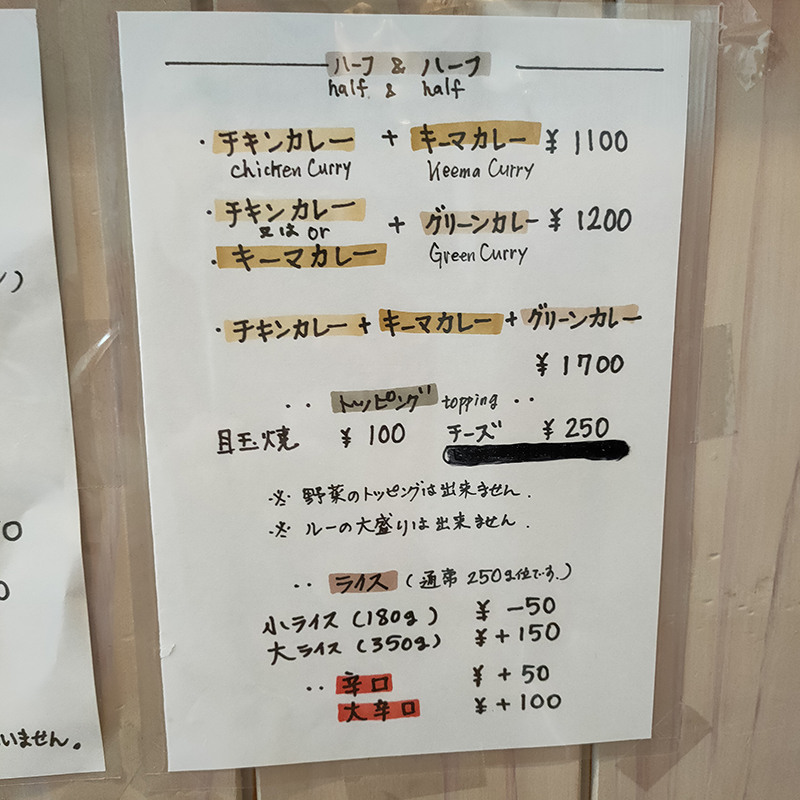 ハーフ & ハーフ
half & half
・チキンカレー + キーマカレー ¥1100
chicken Curry Keema Curry
・チキンカレー
又は or + グリーンカレー ¥1200
・キーマカレー Green Curry
・チキンカレー + キーマカレー + グリーンカレー
¥1700
・・トッピング topping・・
目玉焼 ¥100 チーズ ¥250
※ 野菜のトッピングは出来ません.
※ ルーの大盛りは出来ません.
・・ライス (通常 250g位です.)
小ライス (180g) ¥ -50
大ライス (350g) ¥ +150
・・辛口 ¥ +50
大辛口 ¥ +100
いません。